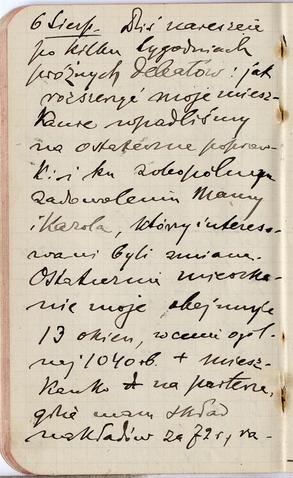 6 Sierp. Dziś nareszcie
po kilku tygodniach
próżnych debatów: jak
rozszerzyć moje miesz-
kanie wpadliśmy
na ostateczne popraw-
ki i ku zobopólnym
zadowoleniu Mamy
i Karola, którzy intereso-
wani byli zmianą.
Ostatecznie mieszka-
nie moje obejmuje
13 okien, w cenie ogól-
nej 1040 rb. + miesz-
kanko na parterze,
gdzie mam skład
nakładów za 72 r., ra-